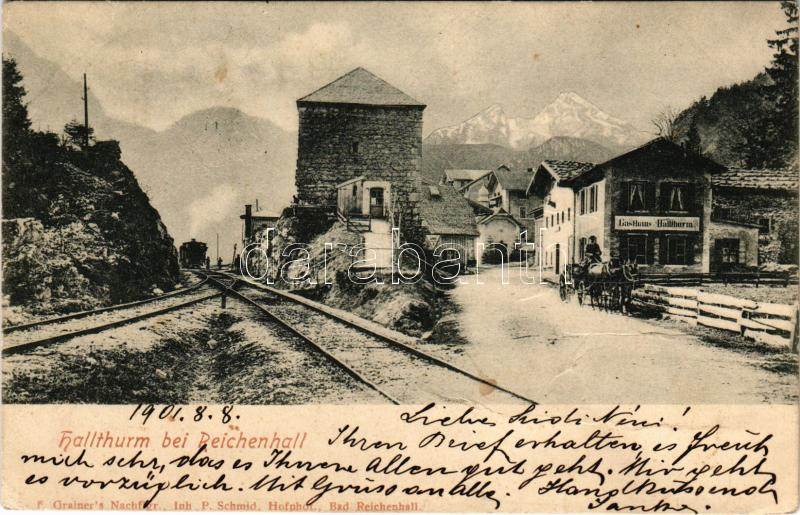 Gasthaus Hallthurm
darabanth.com
1901. 8. 8.
Hallthurm bei Reichenhall
Liebe Sidi Néni!
Ihren Brief erhalten, es freut
mich sehr, das es Ihnen Allen gut geht. Mir geht
es vorzüglich. Mit Gruss an alle, Handküssend
F. Grainer's Nachfgr., Inh. P. Schmid, Hofphot., Bad Reichenhall.